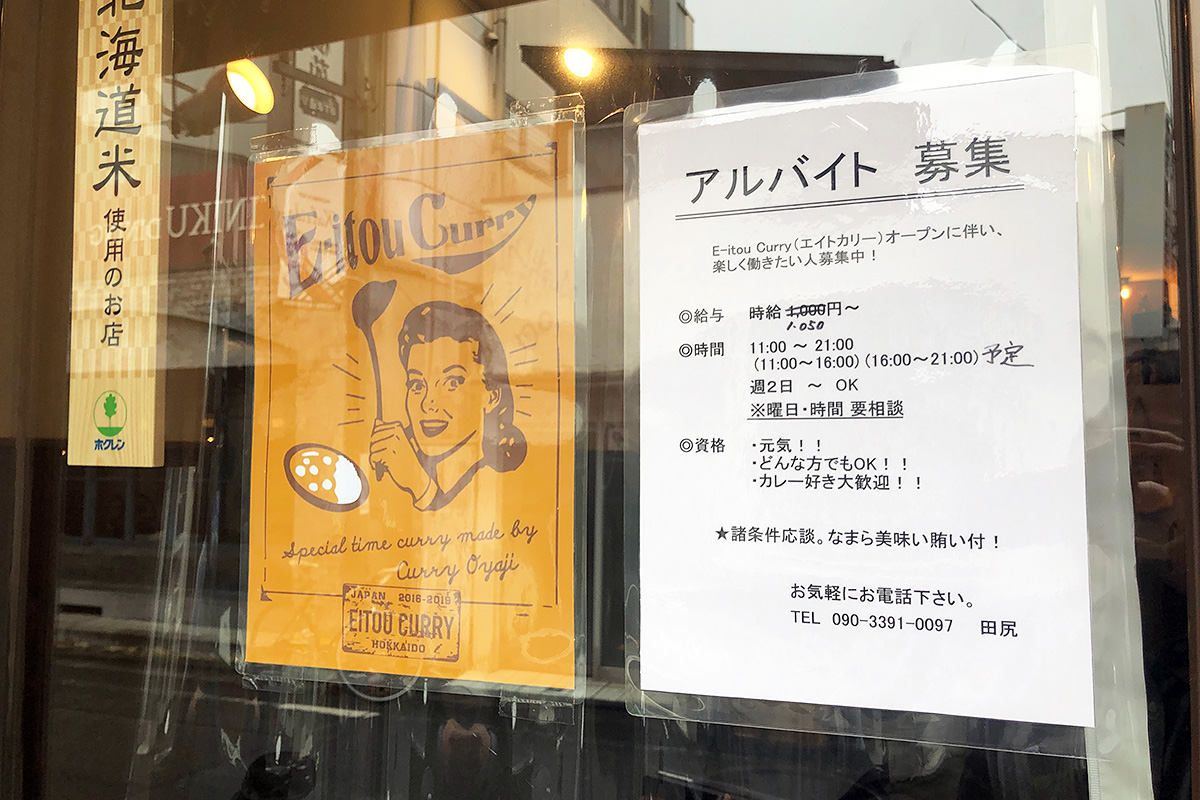 北海道米
使用のお店
ホクレン
E-itou Curry
Special time curry made by
Curry Oyaji
JAPAN 2016-2019
EITOU CURRY
HOKKAIDO
アルバイト 募集
E-itou Curry（エイトカリー）オープンに伴い、
楽しく働きたい人募集中！
◎給与 時給 1,000円～
1.050
◎時間 11:00 ～ 21:00
（11:00～16:00）（16:00～21:00）予定
週２日 ～ OK
※曜日・時間 要相談
◎資格 ・元気！！
・どんな方でもOK！！
・カレー好き大歓迎！！
★諸条件応談。なまら美味い賄い付！
お気軽にお電話下さい。
TEL 090-3391-0097 田尻